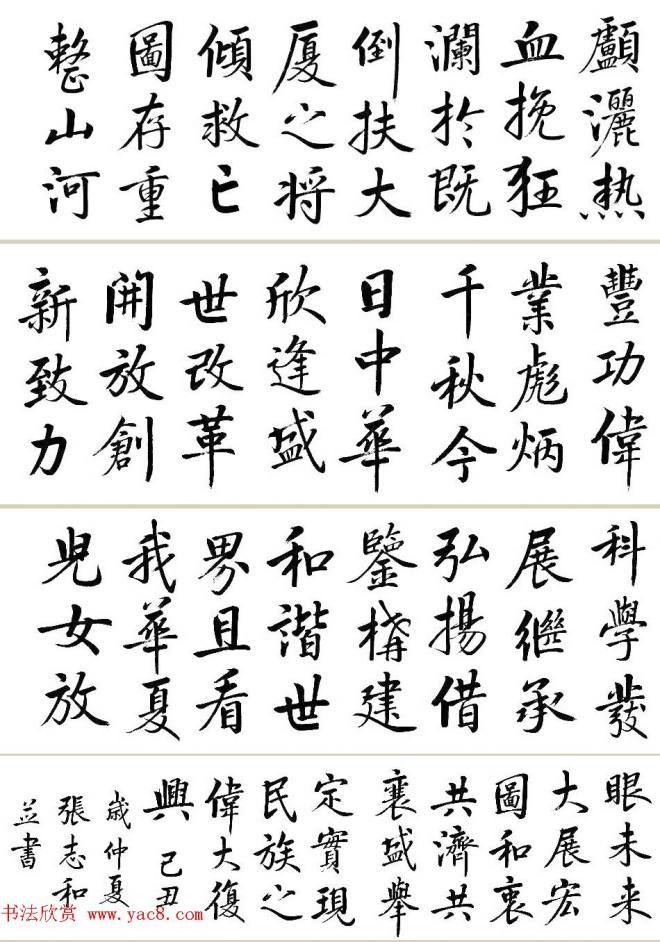 顱灑熱
血挽狂
瀾於既
倒扶大
厦之將
傾救亡
圖存重
整山河
豐功偉
業彪炳
千秋今
日中華
欣逢盛
世改革
開放創
新致力
科學發
展繼承
弘揚借
鑒構建
和諧世
界且看
我華夏
兒女放
眼未来
大展宏
圖和衷
共濟共
襄盛舉
定實現
民族之
偉大復
興己丑
歲仲夏
張志和
並書
书法欣赏 www.yac8.com